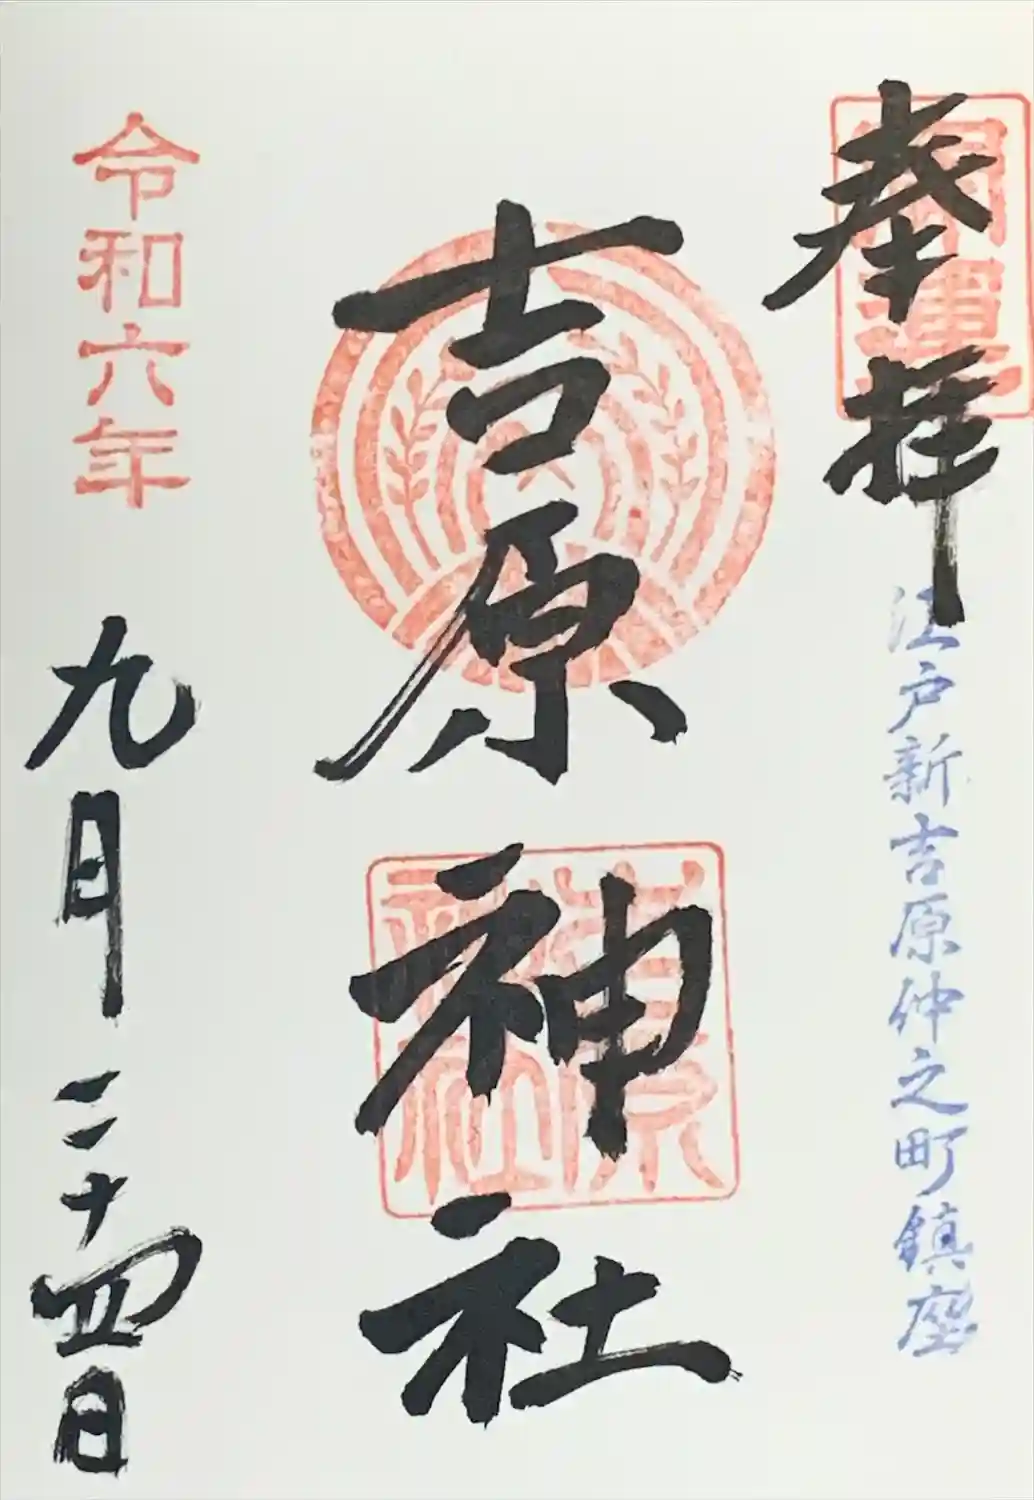 奉拝
開運
江戸新吉原仲之町鎮座
吉原神社
吉原神社
令和六年
九月二十四日